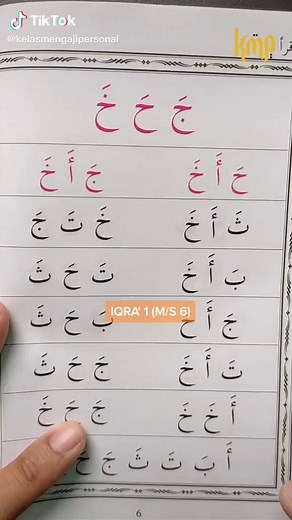 TikTok
@kelasmengajipersonal
kmp
جَ حَ خَ
حَ أَ خَ جَ أَ خَ
ثَ أَ خَ خَ تَ جَ
بَ أَ خَ تَ حَ ثَ
جَ أَ حَ بَ حَ ثَ
IQRA' 1 (M/S 6)
تَ أَ خَ جَ حَ ثَ
أَ خَ خَ جَ حَ خَ
أَ بَ تَ ثَ جَ حَ
6